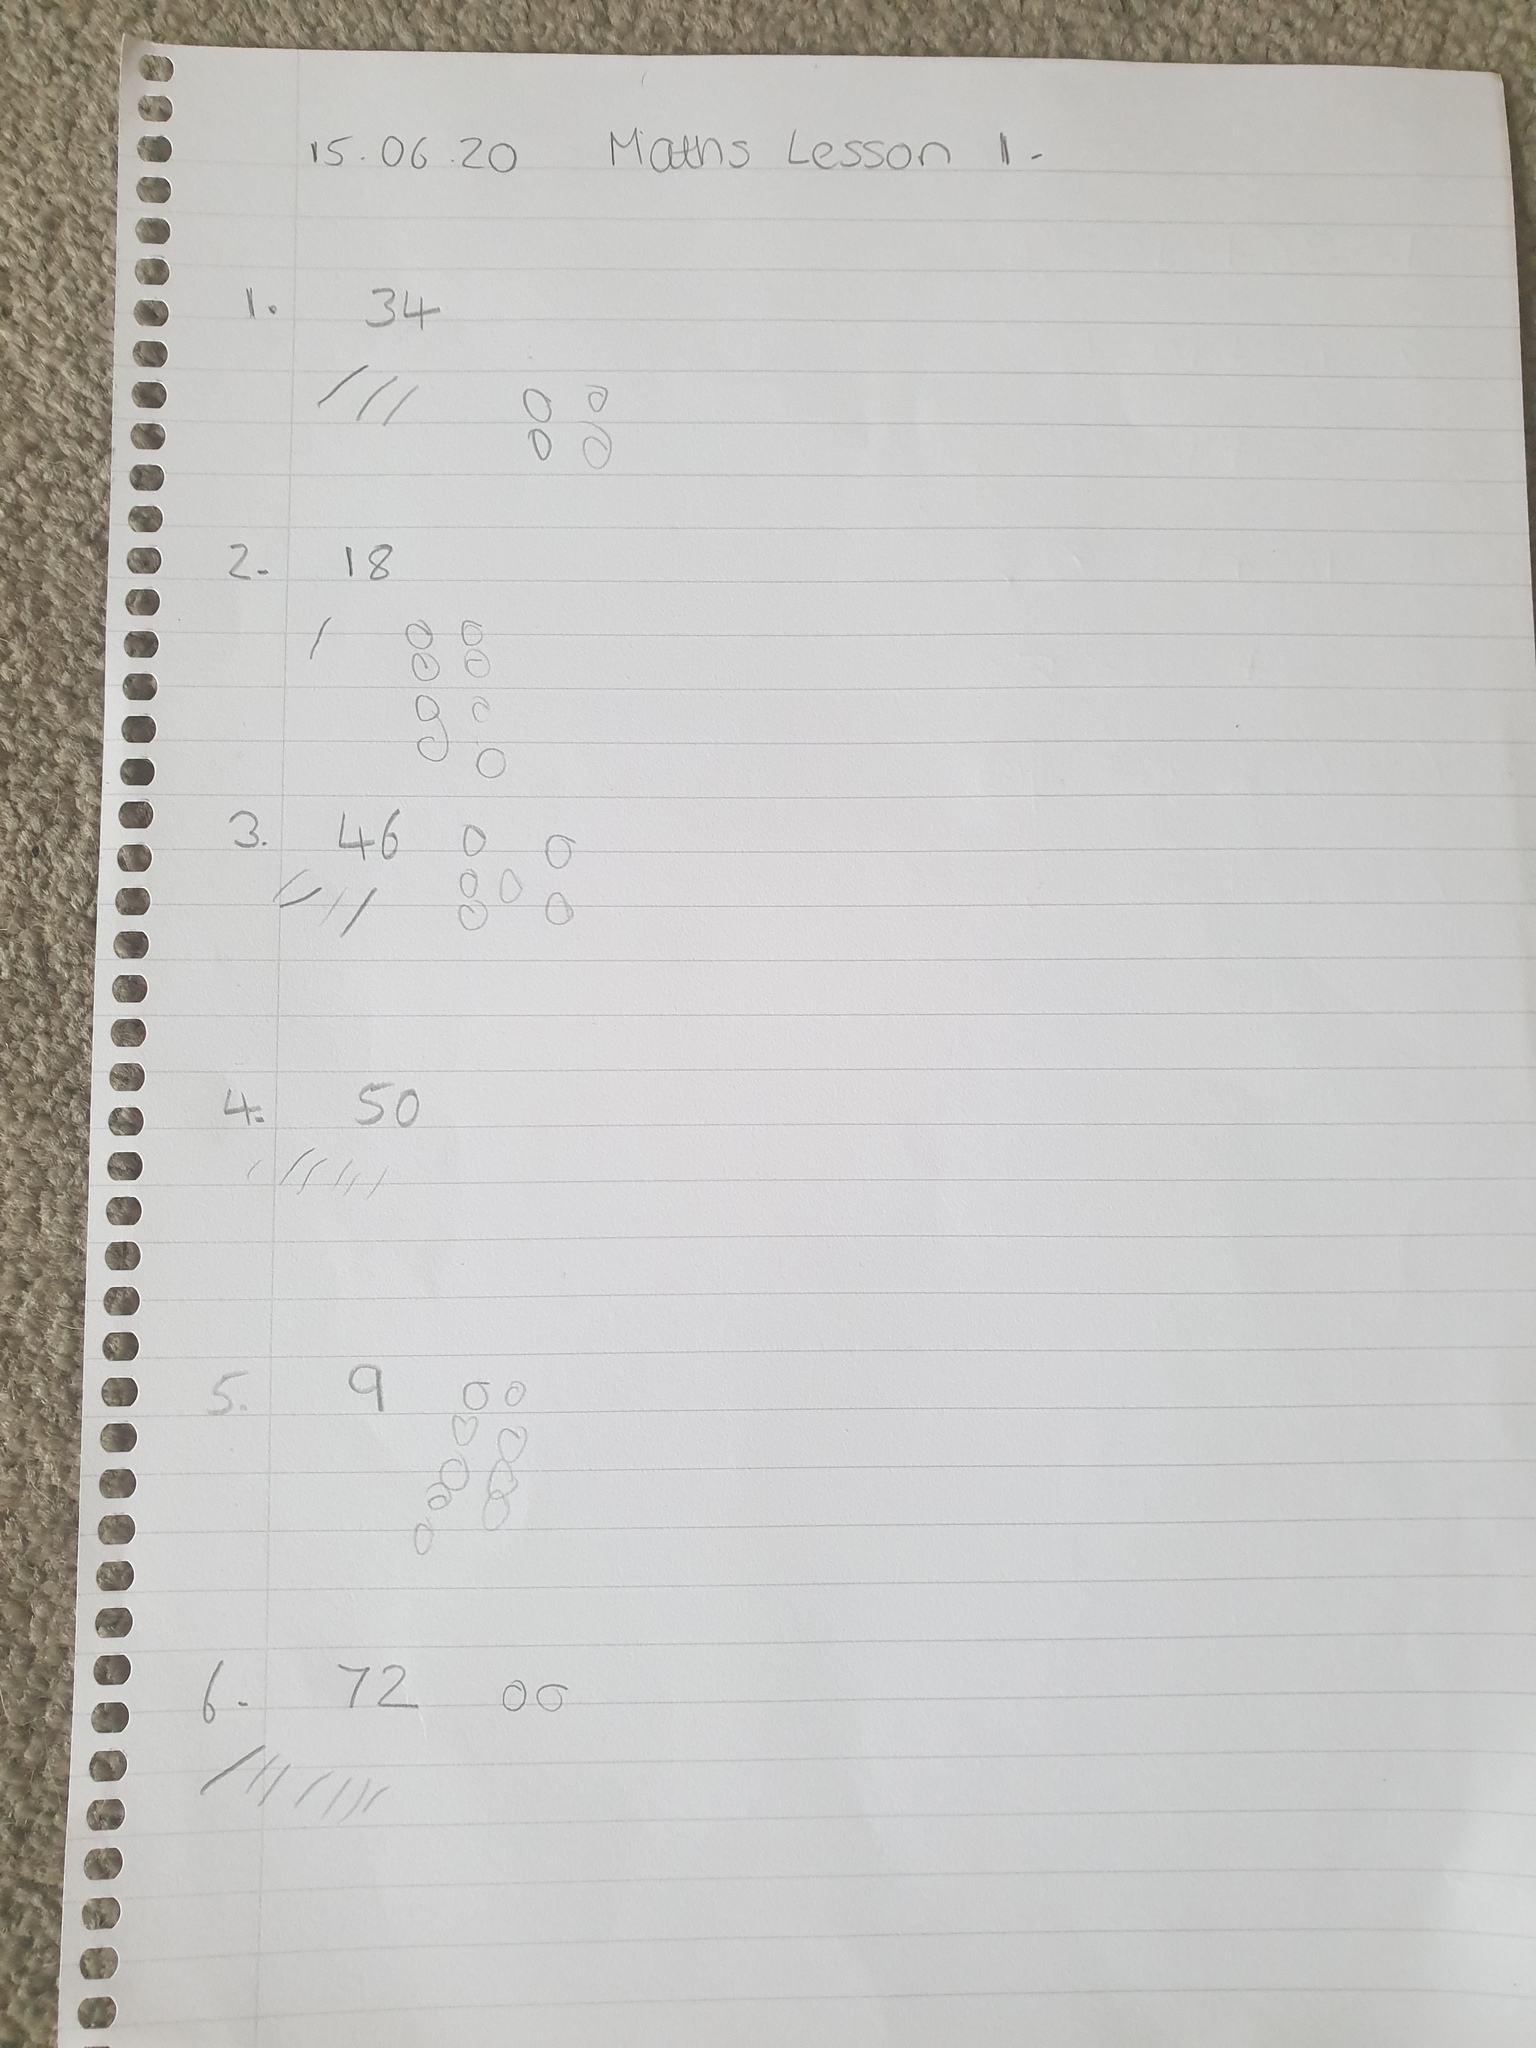 15.06.20 Maths Lesson 1.
1. 34
2. 18
3. 46
4. 50
5. 9
6. 72